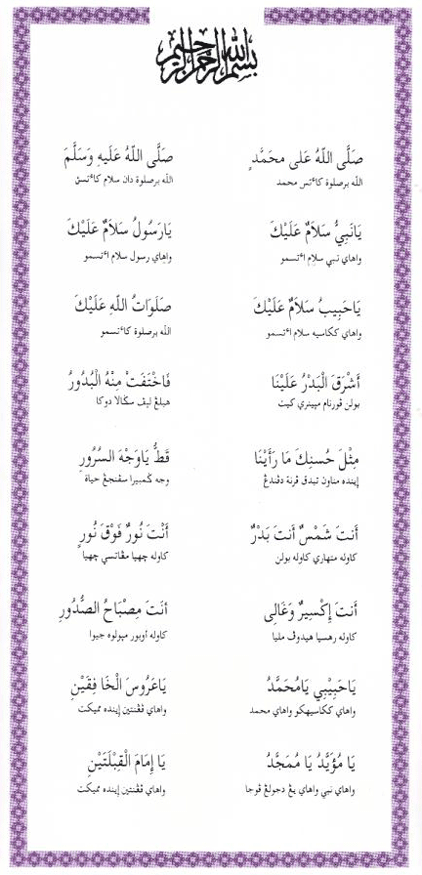 بسم الله الرحمن الرحيم
صَلَّى اللّٰهُ عَلى محَمَّدٍ
الله برصلوة كأتس محمد
صَلَّى اللّٰهُ عَلَيهِ وَسَلَّمَ
الله برصلوة دان سلام كأتسڽ
يَانَبِيُّ سَلاَمٌ عَلَيْكَ
واهاي نبي سلام أتسمو
يَارَسُولُ سَلاَمٌ عَلَيْكَ
واهاي رسول سلام أتسمو
يَاحَبِيبُ سَلاَمٌ عَلَيْكَ
واهاي ككاسيه سلام أتسمو
صَلَوَاتُ اللّٰهِ عَلَيْكَ
الله برصلوة كأتسمو
أَشْرَقَ الْبَدْرُ عَلَيْنَا
بولن ڤورنام مڽينري كيت
فَاخْتَفَتْ مِنْهُ الْبُدُورُ
هيلڠ ليڤ سڬالا دوكا
مِثْلَ حُسنِكَ مَا رَأَيْنَا
إينده مناون تيدق ڤرنه دڤندڠ
قَطُّ يَاوَجْهَ السرُورِ
وجه ڬمبيرا سڤنجڠ حياة
أَنتَ شَمْسٌ أَنتَ بَدْرٌ
كاوله متهاري كاوله بولن
أَنْتَ نُورٌ فَوْقَ نُورٍ
كاوله چهيا مڠاتسي چهيا
أَنتَ إِكْسِيرٌ وَغَالِى
كاوله رهسيا هيدوڤ مليا
أنتَ مِصْبَاحُ الصُّدُورِ
كاوله أوبور مڽولوه جيوا
يَاحَبِيْبِي يَامُحَمَّدُ
واهاي ككاسيهكو واهاي محمد
يَاعَرُوسَ الْخَا فِقَيْنِ
واهاي ڤڠنتين إينده مميكت
يَا مُؤَيَّدُ يَا مُمَجَّدُ
واهاي نبي واهاي يڠ دجولڠ ڤوجا
يَا إِمَامَ الْقِبْلَتَيْنِ
واهاي ڤڠنتين إينده مميكت